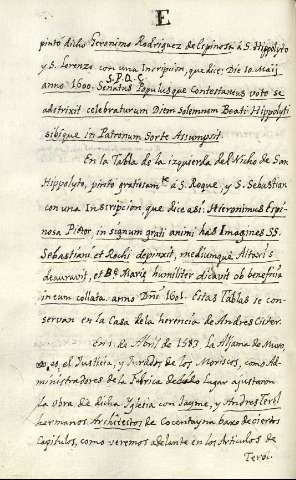 E
pintó dicho Geronimo Rodriguez de Espinosa à S. Hippolyto
y S. Lorenzo con una Incripcion, que dice: Die 10. Maij
anno 1600. Senatus Populusque Contestaneus voto se
S.P.Q.C.
adstrixit celebraturum Diem Solemnem Beati Hippolyti
sibique in Patronum Sorte Assumpsit.
En la Tabla de la izquierda del Nicho de San
Hippolyto, pintò gratisam.te à S. Roque, y S. Sebastian
con una Inscripcion, que dice asi: Hieronimus Espi-
nosa Pictor, in signum grati animi has Imagines SS.
Sebastiani et Rochi depinxit, mediumque Altaris
deauravit, et Bę Marię humiliter dicavit ob beneficia
in eum collata. anno Dñi 1601. Estas Tablas se con-
servan en la Casa de la herencia de Andres Cister.
En 1. de Abril de 1589 la Aljama de Muro,
el Justicia, y Jurados de los Moriscos, como Ad-
ministradores de la Fabrica de dicho Lugar ajustaron
la Obra de dicha Iglesia con Jayme, y Andres Terol
hermanos Architectos de Cocentayna baxo de ciertos
Capitulos, como veremos adelante en los Articulos de
Terol.